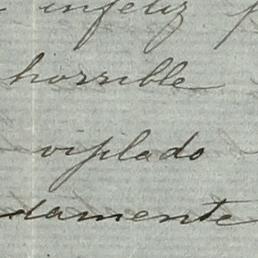 infeliz
horrible
viplado
damente